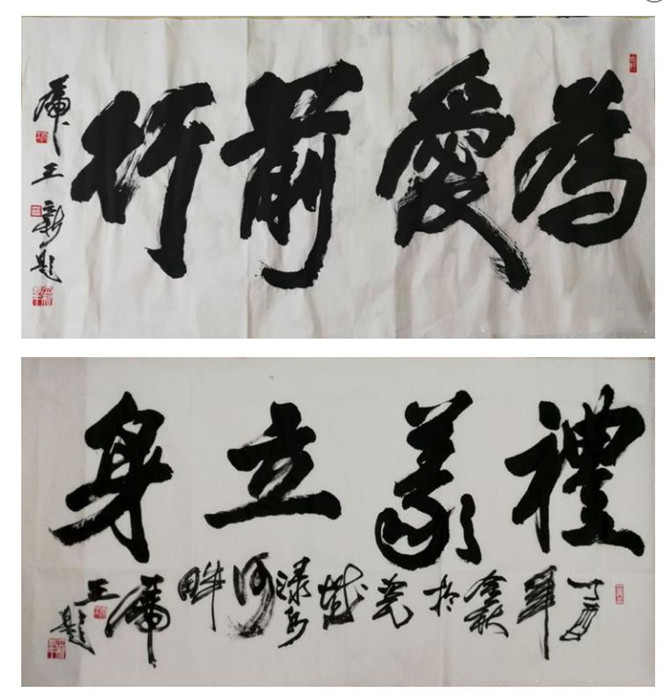 為愛前行
虎王新題
禮義立身
丁酉年金秋於莞城河畔虎
王題